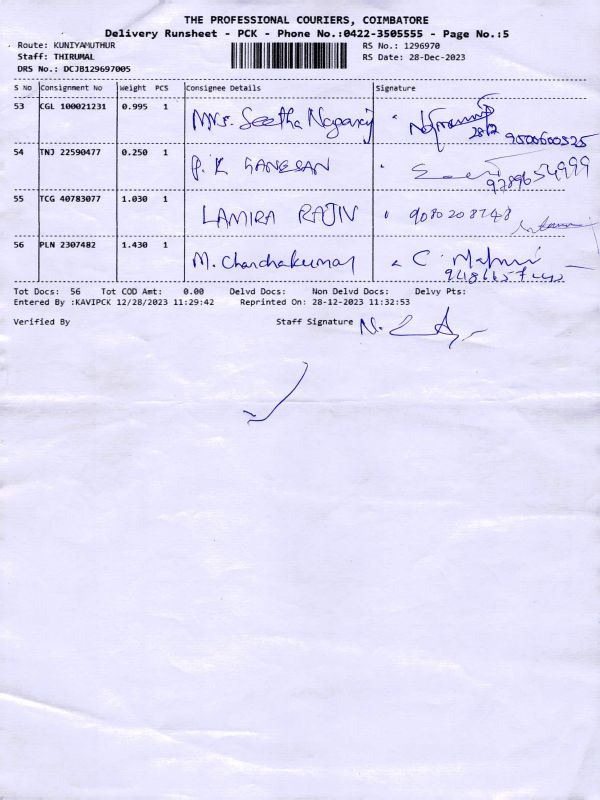 THE PROFESSIONAL COURIERS, COIMBATORE
Delivery Runsheet - PCK - Phone No.:0422-3505555 - Page No.:5
Route: KUNIYAMUTHUR RS No.: 1296970
Staff: THIRUMAL RS Date: 28-Dec-2023
DRS No.: DCJB129697005
S No Consignment No Weight PCS Consignee Details Signature
53 CGL 100021231 0.995 1 Mrs. Seetha Nagaraj 28/12 9500600525
54 TNJ 22590477 0.250 1 P. K GANESAN 9789654999
55 TCG 40783077 1.030 1 LAMIRA RAJIV 9080208748
56 PLN 2307482 1.430 1 M. Chandrakumar C.
Tot Docs: 56 Tot COD Amt: 0.00 Delvd Docs: Non Delvd Docs: Delvy Pts:
Entered By :KAVIPCK 12/28/2023 11:29:42 Reprinted On: 28-12-2023 11:32:53
Verified By Staff Signature